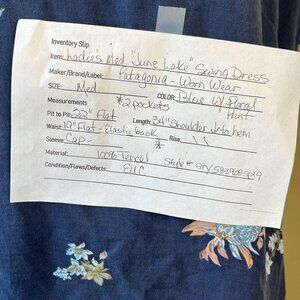 Inventory Slip
Item: Ladies Med "June Lake" Swing Dress
Maker/Brand/Label: Patagonia - Worn Wear
SIZE: Med COLOR: Blue w/ Floral
Measurements *2 pockets Print
Pit to Pit: 22" Flat Length: 34" Shoulder to hem
Waist: 19" Flat - Elastic back Rise:
Sleeve: Cap- *
Material: 100% Tencel Style#
Condition/Flaws/Defects: EUC